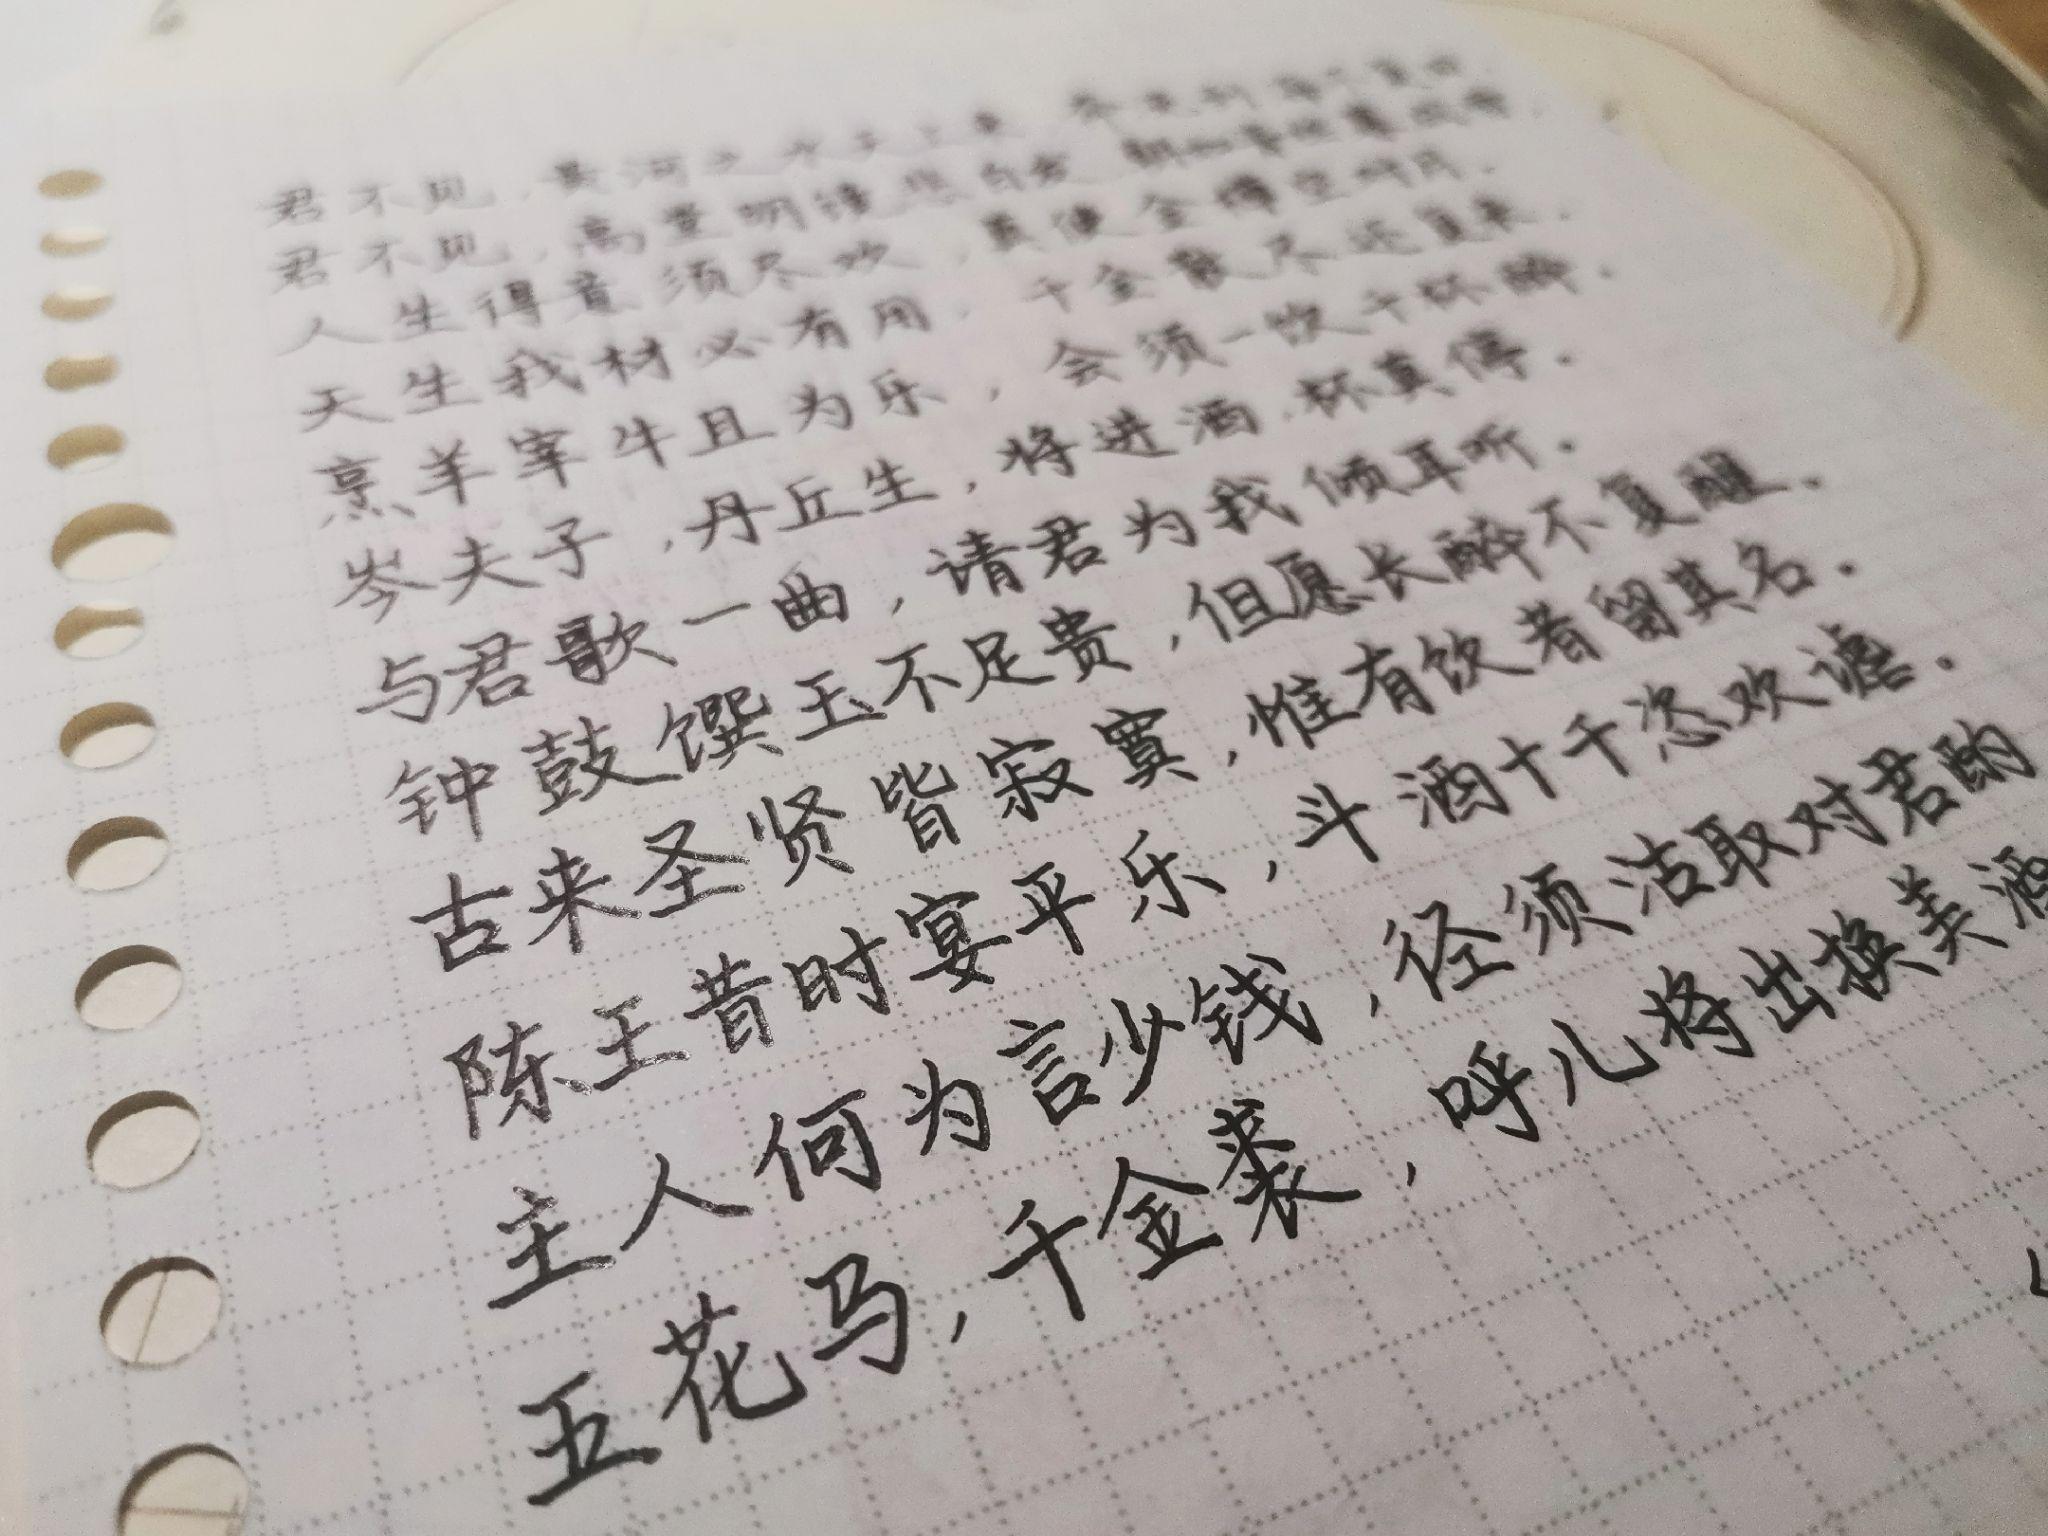 君不见，黄河之水天上来，奔流到海不复回。
君不见，高堂明镜悲白发，朝如青丝暮成雪。
人生得意须尽欢，莫使金樽空对月。
天生我材必有用，千金散尽还复来。
烹羊宰牛且为乐，会须一饮千杯醉。
岑夫子，丹丘生，将进酒，杯莫停。
与君歌一曲，请君为我倾耳听。
钟鼓馔玉不足贵，但愿长醉不复醒。
古来圣贤皆寂寞，惟有饮者留其名。
陈王昔时宴平乐，斗酒十千恣欢谑。
主人何为言少钱，径须沽取对君酌
五花马，千金裘，呼儿将出换美酒